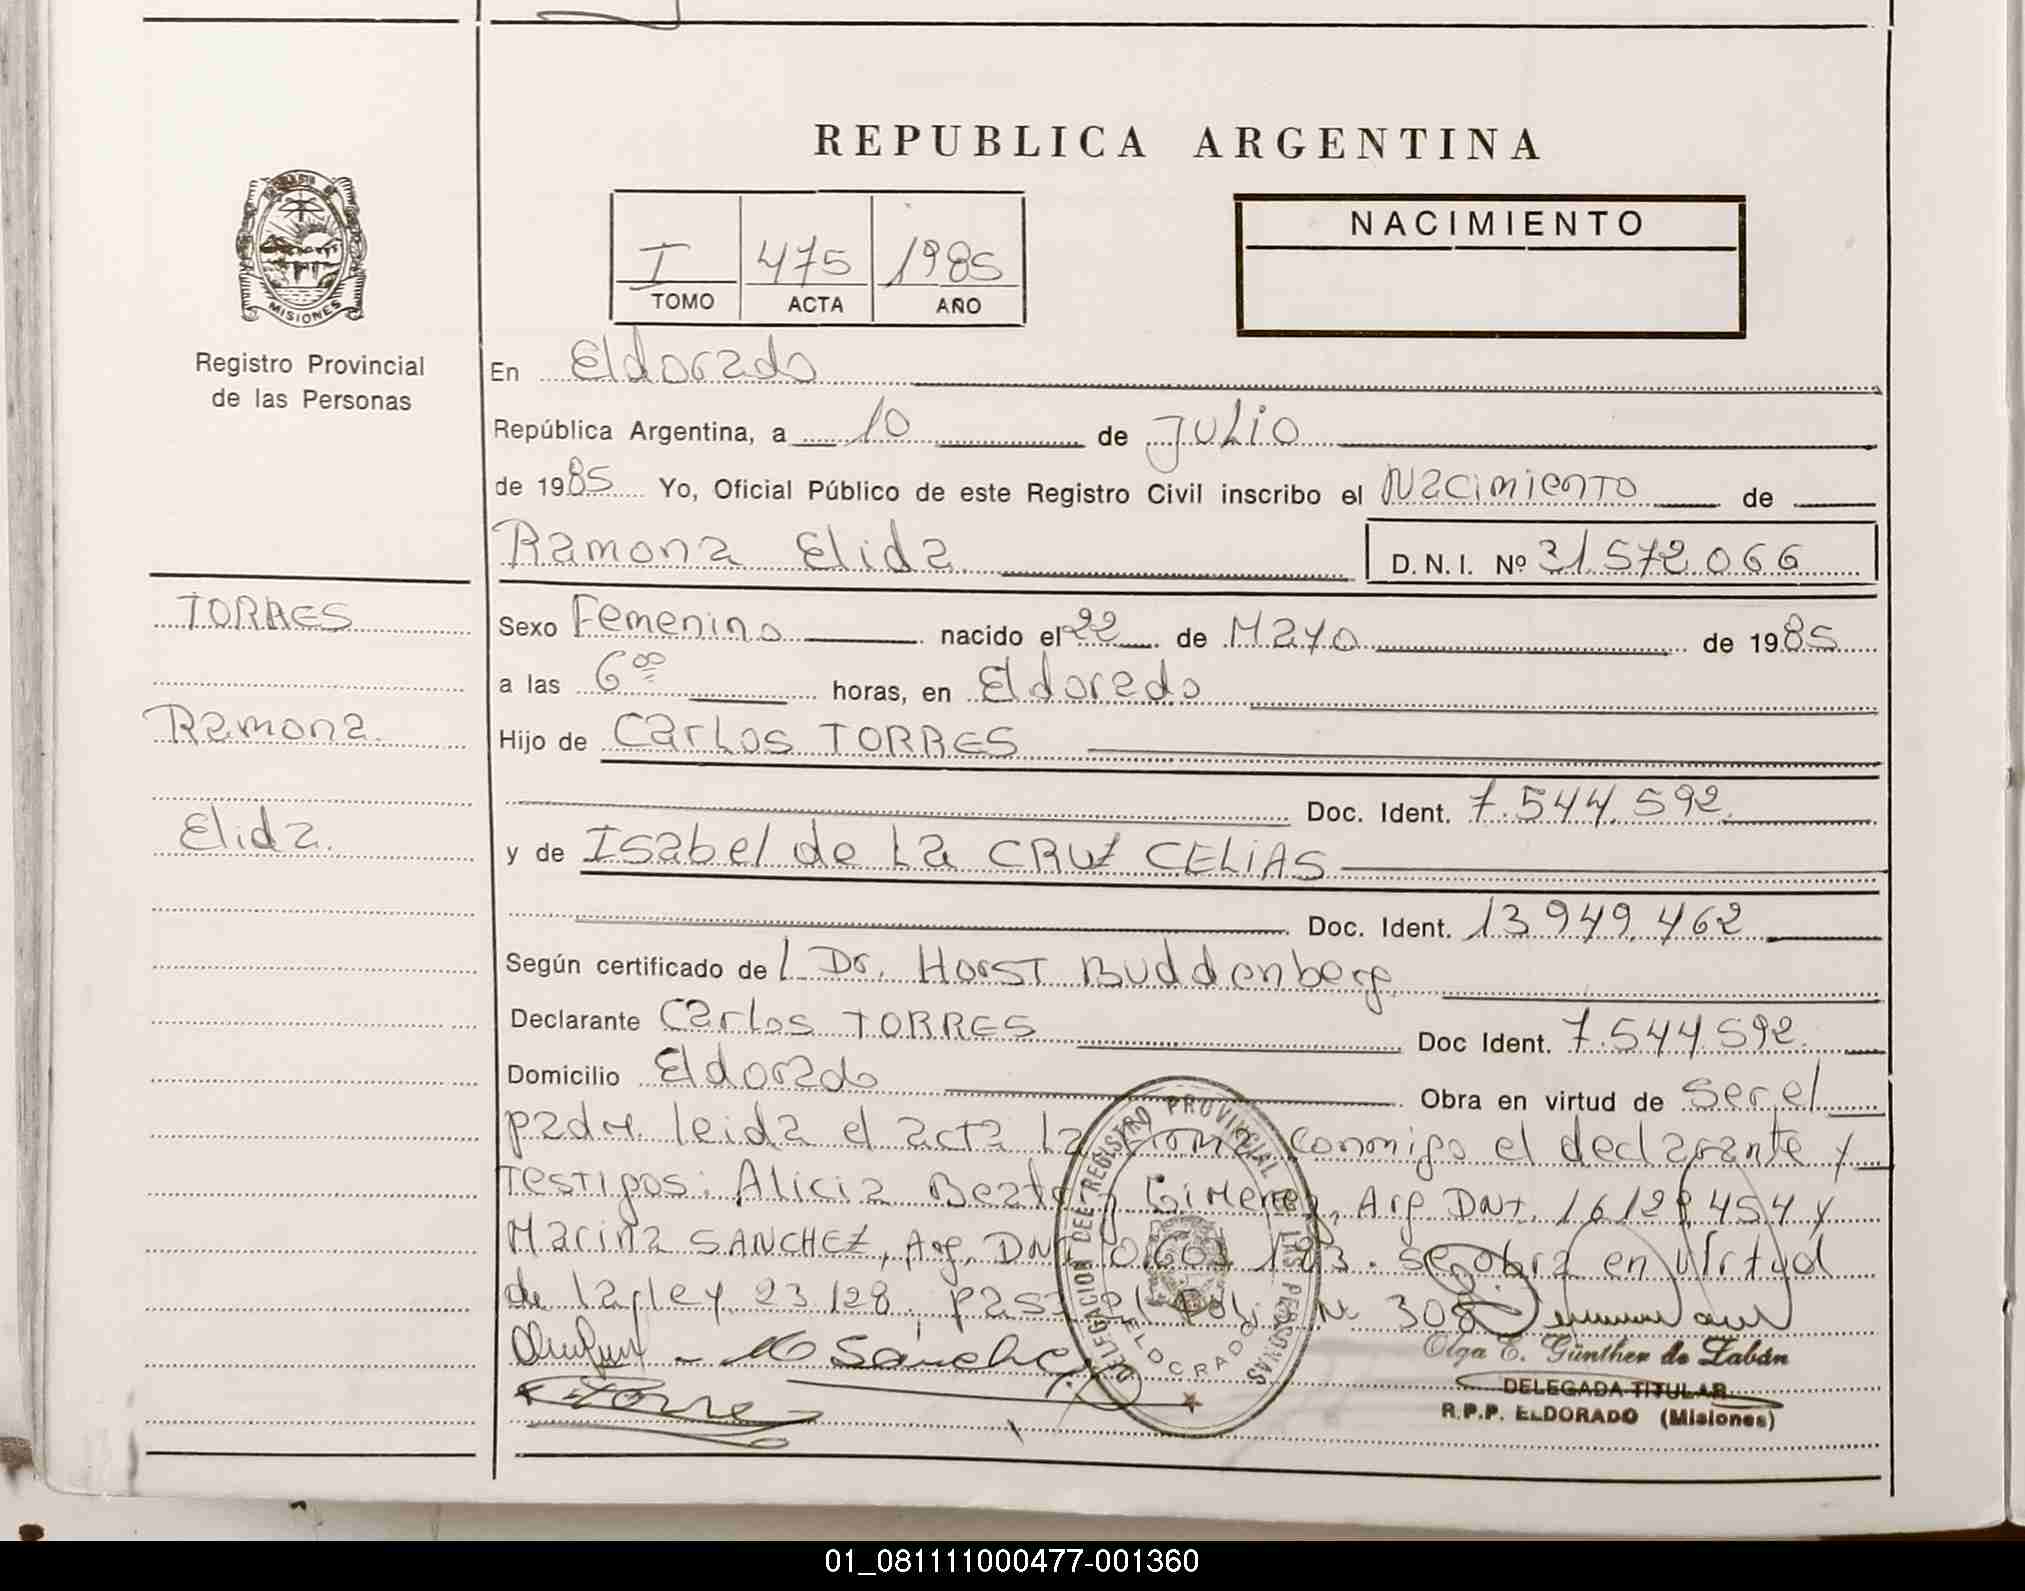 REPUBLICA ARGENTINA
NACIMIENTO
I 475 1985
TOMO ACTA AÑO
MISIONES
Registro Provincial
de las Personas
En Eldorado
República Argentina, a 10 de JULIO
de 1985 Yo, Oficial Público de este Registro Civil inscribo el Nacimiento de
Ramona Elida D.N.I. Nº 31.572.066
TORRES
Ramona
Elida.
Sexo Femenino nacido el 22 de Mayo de 1985
a las 6 00 horas, en Eldorado
Hijo de Carlos TORRES
Doc. Ident. 7.544.592
y de Isabel de La CRUZ CELIAS
Doc. Ident. 13.949.462
Según certificado de Dr. Horst Buddenberg
Declarante Carlos TORRES Doc Ident. 7.544.592.
Domicilio Eldorado Obra en virtud de ser el
padre. leida el acta La firma conmigo el declarante y
Testigos: Alicia Beatriz Gimenez, Arg. DNI. 16.129.454 y
Marina SANCHEZ, Arg. DNI se obra en virtud
de la ley 23.128. pasa al fol. Nº 308
M Sanchez
Torres
DELEGACION DEL REGISTRO PROVINCIAL DE LAS PERSONAS
ELDORADO
Olga E. Günther de Zabán
DELEGADA TITULAR
R.P.P. ELDORADO (Misiones)
01_081111000477-001360